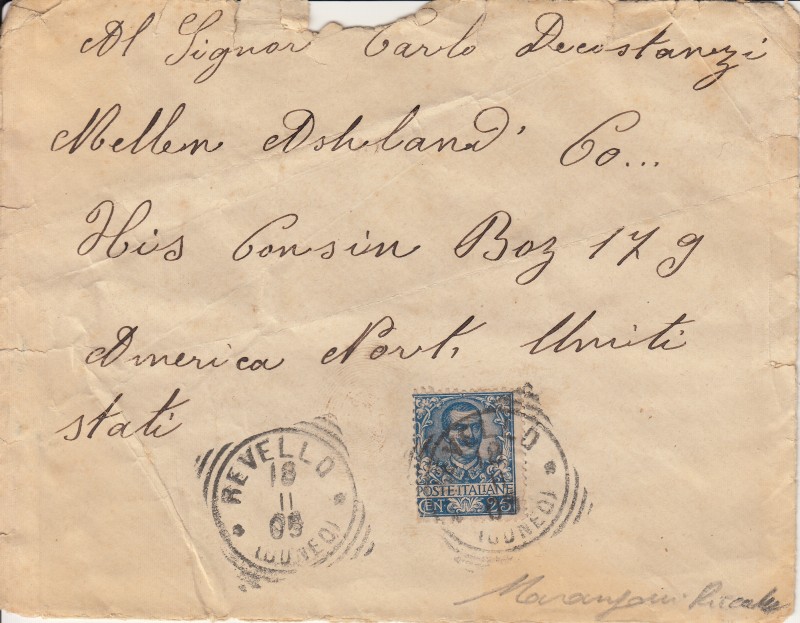 Al Signor Carlo Decostanzi
Mellen Ashland Co...
His Consin Boz 179
America Nort, Uniti
stati
REVELLO
18
11
05
(CUNEO)
POSTE·ITALIANE
CEN 25
(CUNEO)
Marangoni